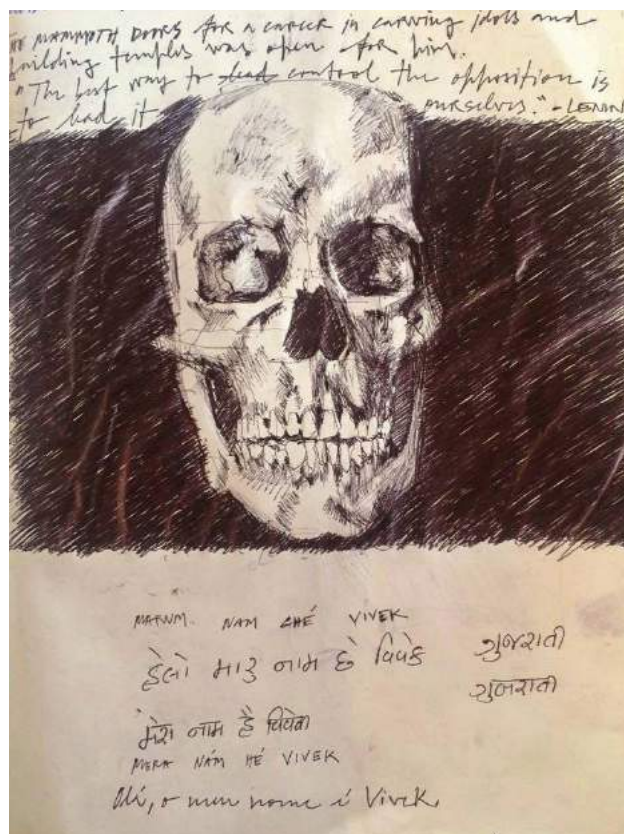 MAMMOTH DOORS for a career in carving idols and
building temples was open for him.
"The best way to lead control the opposition is
to lead it ourselves." - LENIN
MARUM NAM CHÉ VIVEK
હેલો મારુ નામ છે વિવેક ગુજરાતી
ગુજરાતી
मेरा नाम है विवेक
MERA NÁM HÉ VIVEK
Oi, o meu nome é Vivek.